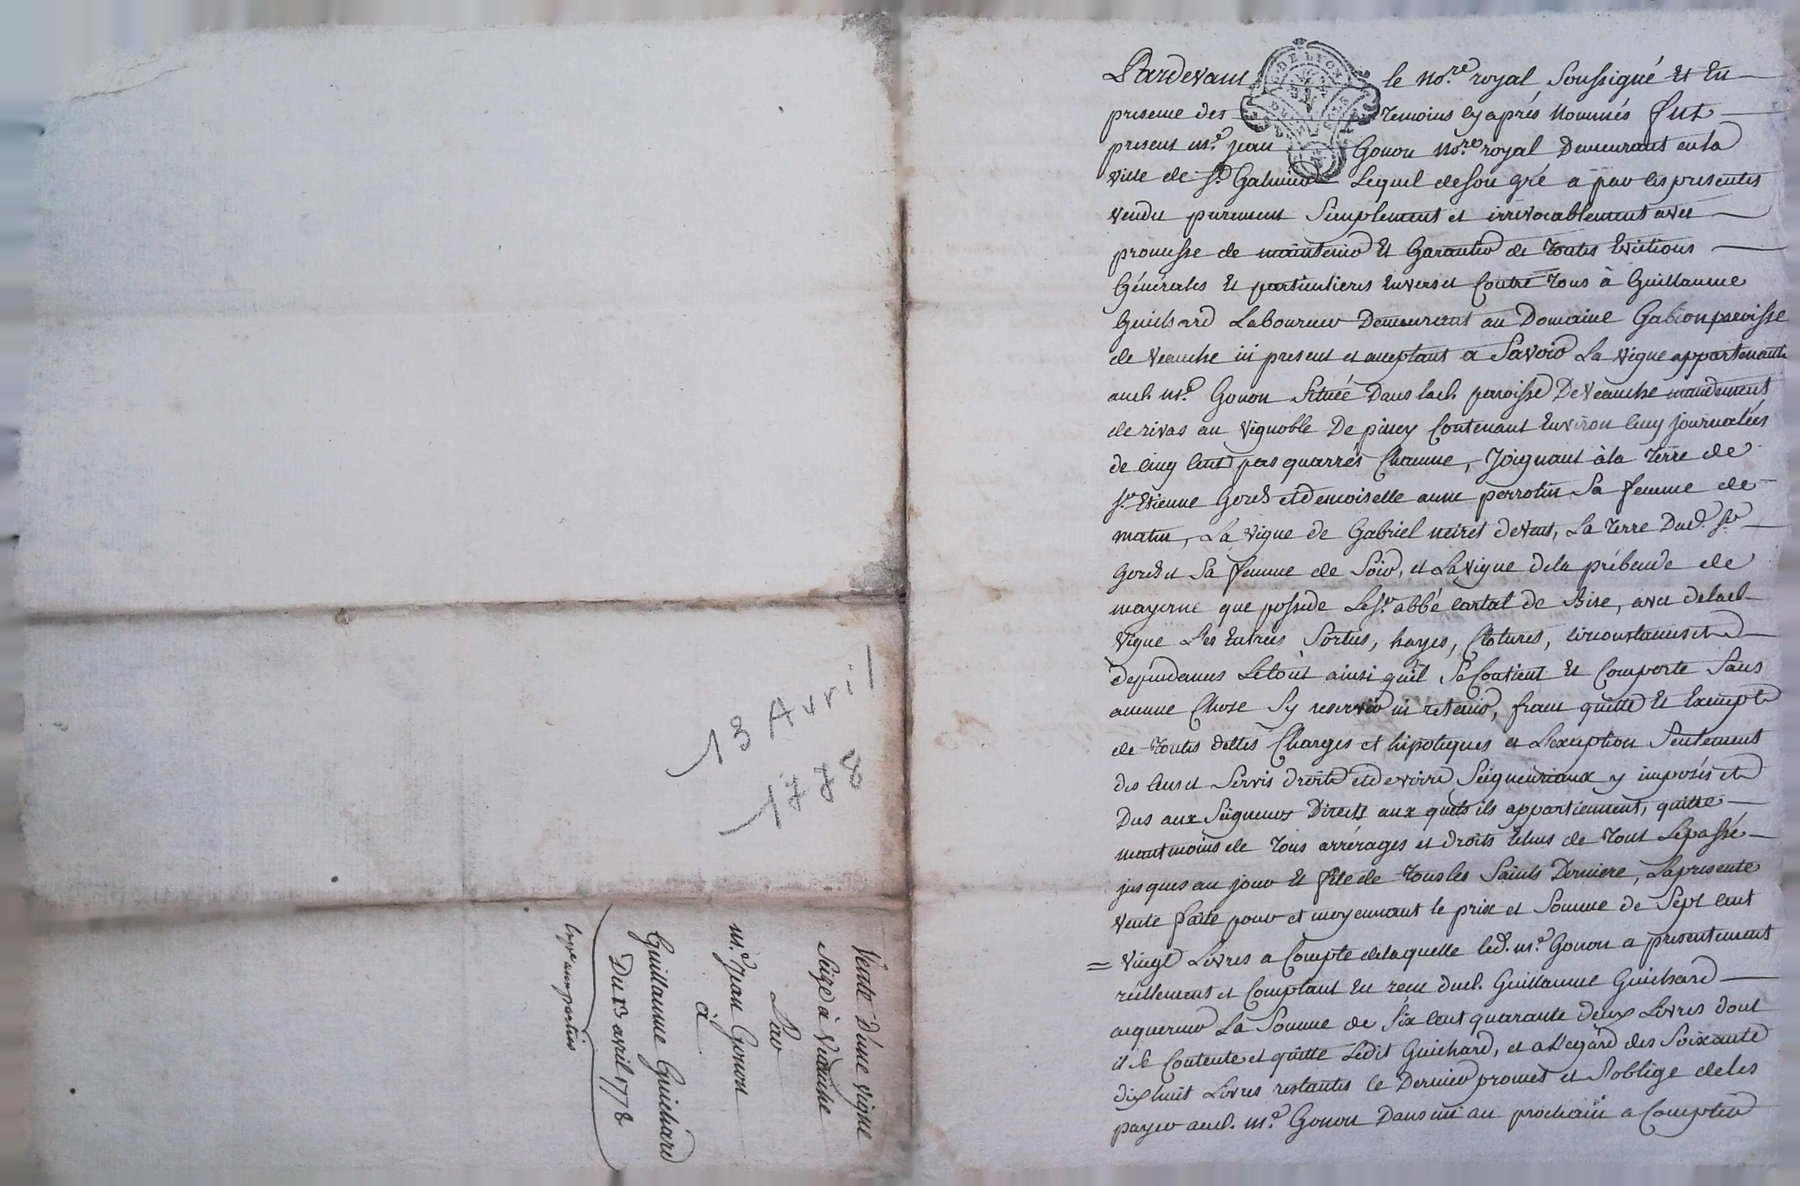 13 Avril
1778
Vente D'une vigne
Scize à Veauche
Par
m.e Jean Gonon
à
Guillaume Guichard
Du 13 avril 1778
Pardevant le no.re royal, soussigné et en
presence des temoins cy après nommés fut
present m.e jean Gonon no.re royal Demeurant en la
ville de s.t Galmier Lequel de son gré a par les presentes
vendu purement simplement et irrévocablement avec
promesse de maintenir et Garantir de toutes Evictions
Générales et particulieres envers et contre tous à Guillaume
Guichard Laboureur Demeurant au Domaine Gabion paroisse
de Veauche ici present et acceptant a savoir La vigne appartenante
aud. m.e Gonon située Dans lad. paroisse De Veauche mandement
de rivas au vignoble De pincy contenant environ cinq journalées
de cinq cent pas quarrés chacune, joignant à la terre de
s.r Etienne Gord et demoiselle anne perrotin sa femme de
matin, La vigne de Gabriel neiret de vent, La terre Dud. s.r
Gord et sa femme de soir, et La vigne de la prébende de
mayerne que posside Le s.r abbé cartal de Bise, avec de lad.
vigne Les Entrées sorties, hayes, clotures, circonstances et
dependances Le tout ainsi qu'il se contient et comporte sans
aucune chose s'y reserver ni retenir, franc quitte et exempt
de toutes dettes charges et hipoteques a L'exception seulement
des cens et servis droits et devoirs seigneuriaux y imposés et
Dus aux seigneurs Directs aux quels ils appartiennent, quitte
neantmoins de tous arrérages et droits echus de tout Le passé
jusques au jour et fete de tous les saints Derniere, La presente
vente faite pour et moyennant le prix et somme de sept cent
= vingt Livres a compte de laquelle led. m.e Gonon a presentement
reellement et comptant eu recu dud. Guillaume Guichard
acquereur La somme de six cent quarante deux Livres dont
il se contente et quitte Ledit Guichard, et a L'egard des soixante
dix huit Livres restantes ce Dernier promet et s'oblige de les
payer aud. m.e Gonon Dans un an prochain a compter